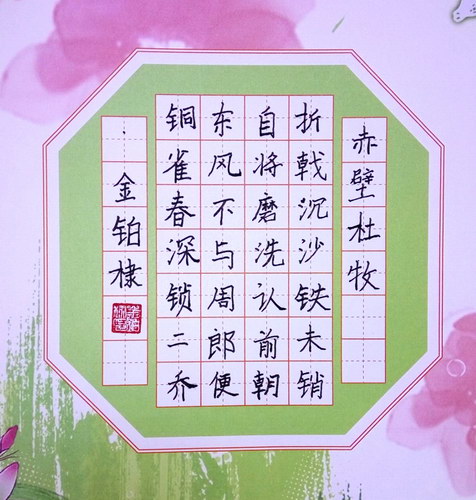 赤壁杜牧
折戟沉沙铁未销
自将磨洗认前朝
东风不与周郎便
铜雀春深锁二乔
金铂棣